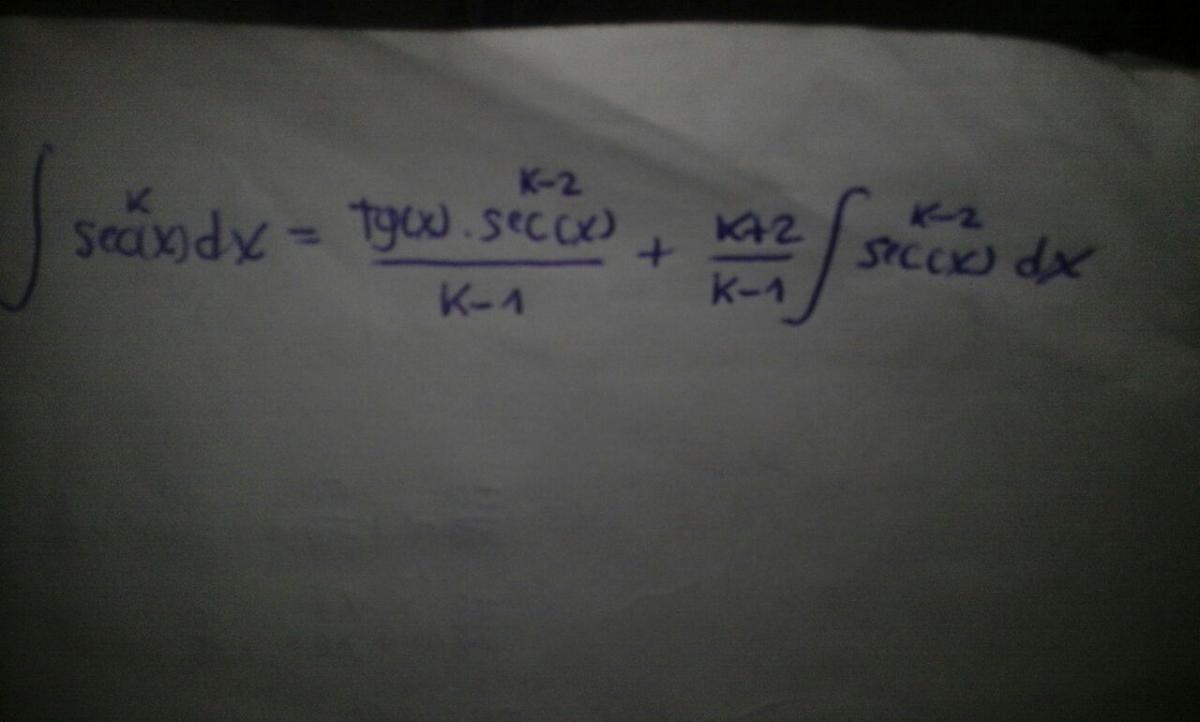 ∫ sec^K(x) dx = tg(x) . sec^{K-2}(x) / K-1 + K+2 / K-1 ∫ sec^{K-2}(x) dx